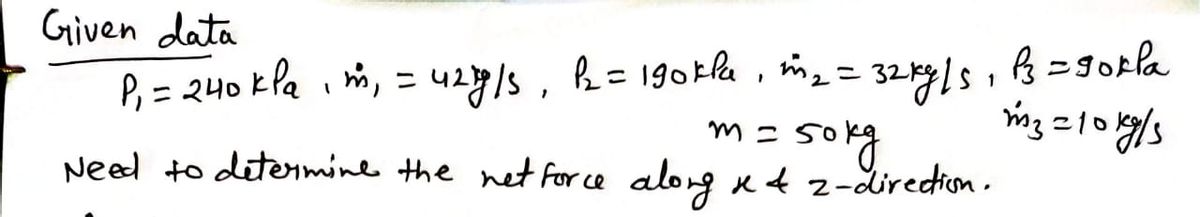 Given data
P₁ = 240 kPa, ṁ₁ = 42 kg/s, P₂ = 190 kPa, ṁ₂ = 32 kg/s, P₃ = 90 kPa
m = 50 kg ṁ₃ = 10 kg/s
Need to determine the net force along x & z-direction.